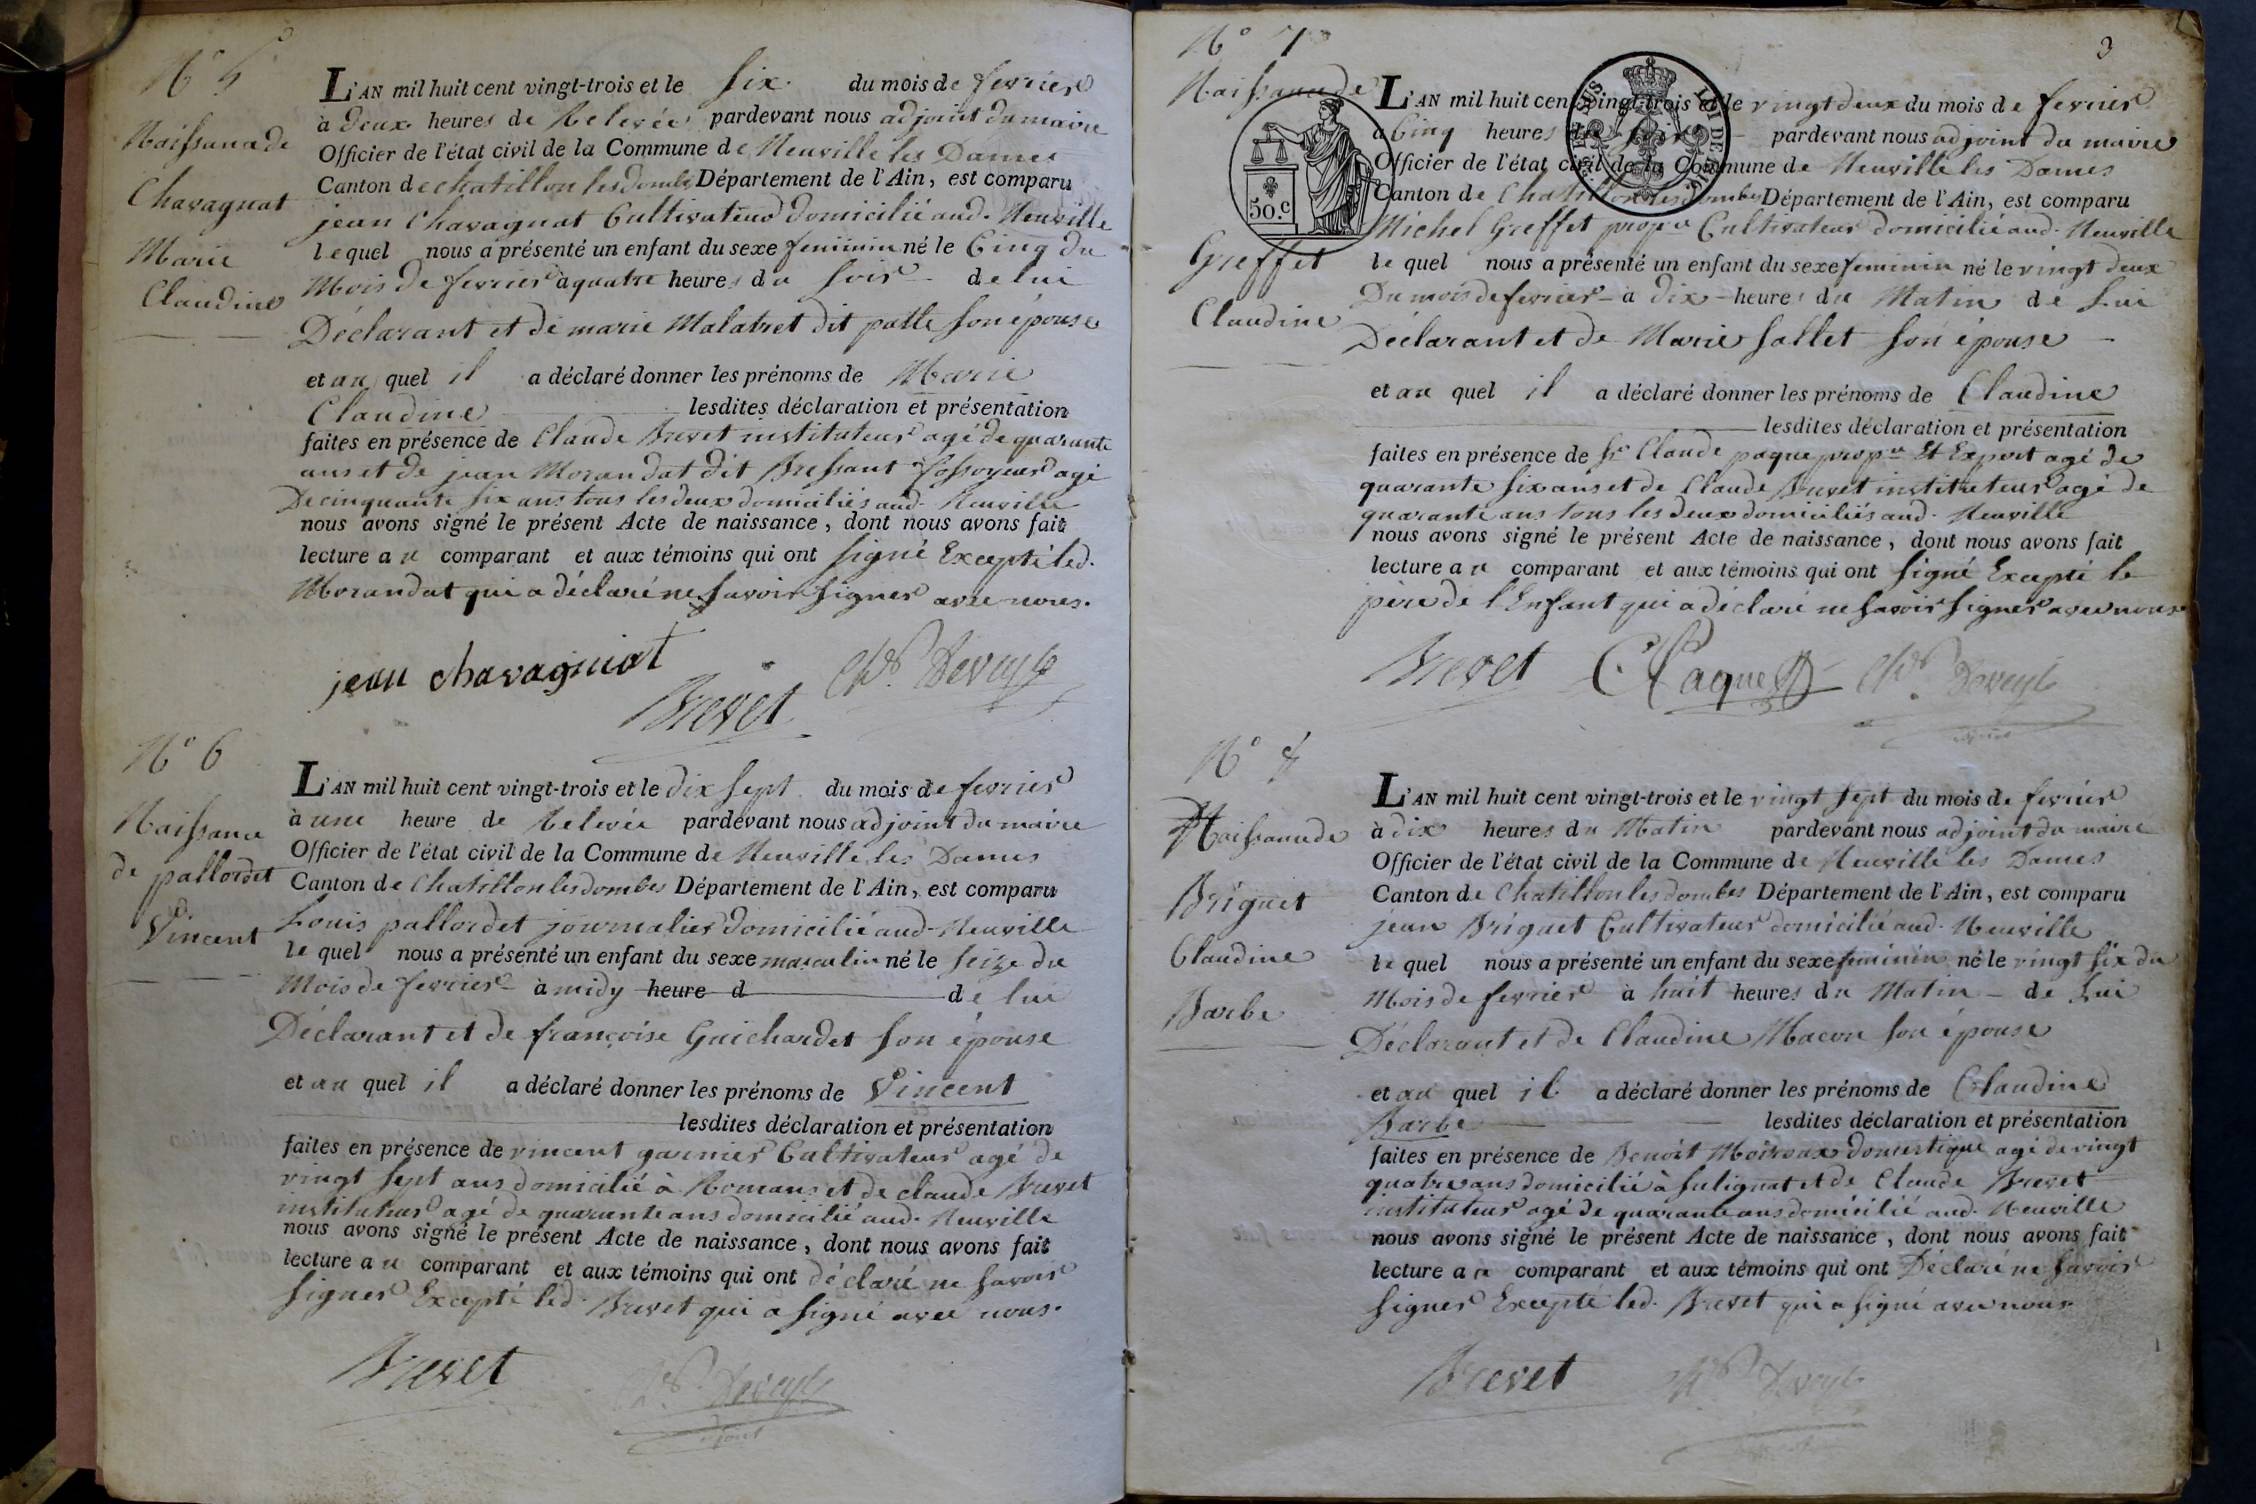 N° 5
Naissance de
Chavagnat
Marie
Claudine
L'AN mil huit cent vingt-trois et le six du mois de fevrier
à deux heures de Relevée pardevant nous adjoint du maire
Officier de l'état civil de la Commune de Neuville les Dames
Canton de chatillon les dombes Département de l'Ain, est comparu
jean Chavagnat Cultivateur domicilié aud. Neuville
le quel nous a présenté un enfant du sexe feminin né le Cinq du
Mois de fevrier à quatre heures du soir de lui
Déclarant et de marie Malatret dit patte son épouse
et au quel il a déclaré donner les prénoms de Marie
Claudine lesdites déclaration et présentation
faites en présence de Claude Brevet instituteur agé de quarante
ans et de jean Morandat dit Bressant fossoyeur agé
De cinquante six ans tous les deux domiciliés aud. Neuville
nous avons signé le présent Acte de naissance, dont nous avons fait
lecture au comparant et aux témoins qui ont signé Excepté led.
Morandat qui a déclaré ne savoir signer avec nous.
jean chavagniat
Brevet
N° 6
Naissance
de pallordet
Vincent
L'AN mil huit cent vingt-trois et le dix sept du mois de fevrier
à une heure de Relevée pardevant nous adjoint du maire
Officier de l'état civil de la Commune de Neuville les Dames
Canton de Chatillon les dombes Département de l'Ain, est comparu
Louis pallordet journalier domicilié aud. Neuville
le quel nous a présenté un enfant du sexe masculin né le seize du
Mois de fevrier à midy heure d de lui
Déclarant et de françoise Guichardet son épouse
et au quel il a déclaré donner les prénoms de Vincent
lesdites déclaration et présentation
faites en présence de vincent garnier Cultivateur agé de
vingt sept ans domicilié à Romans et de claude Brevet
instituteur agé de quarante ans domicilié aud. Neuville
nous avons signé le présent Acte de naissance, dont nous avons fait
lecture au comparant et aux témoins qui ont déclaré ne savoir
signer Excepté led. Brevet qui a signé avec nous.
Brevet
3
N° 7
Naissance de
Greffet
Claudine
50.c
L'AN mil huit cent vingt-trois et le vingt deux du mois de fevrier
à Cinq heures du soir pardevant nous adjoint du maire
Officier de l'état civil de la Commune de Neuville les Dames
Canton de Chatillon les dombes Département de l'Ain, est comparu
Michel Greffet prop.re Cultivateur domicilié aud. Neuville
le quel nous a présenté un enfant du sexe feminin né le vingt deux
Du mois de fevrier à dix heures du Matin de Lui
Déclarant et de Marie Sallet son épouse
et au quel il a déclaré donner les prénoms de Claudine
lesdites déclaration et présentation
faites en présence de Sr. Claude paque prop.re Et Expert agé de
quarante six ans et de Claude Brevet instituteur agé de
quarante ans tous les deux domiciliés aud. Neuville
nous avons signé le présent Acte de naissance, dont nous avons fait
lecture au comparant et aux témoins qui ont signé Excepté le
père de l'Enfant qui a déclaré ne savoir signer avec nous
Brevet
N° 8
Naissance de
Briguet
Claudine
Barbe
L'AN mil huit cent vingt-trois et le vingt sept du mois de fevrier
à dix heures du Matin pardevant nous adjoint du maire
Officier de l'état civil de la Commune de Neuville les Dames
Canton de Chatillon les dombes Département de l'Ain, est comparu
jean Briguet Cultivateur domicilié aud. Neuville
le quel nous a présenté un enfant du sexe feminin né le vingt six du
Mois de fevrier à huit heures du Matin de Lui
Déclarant et de Claudine Macon son épouse
et au quel il a déclaré donner les prénoms de Claudine
Barbe lesdites déclaration et présentation
faites en présence de Benoit Moiroux domestique agé de vingt
quatre ans domicilié à Sulignat et de Claude Brevet
instituteur agé de quarante ans domicilié aud. Neuville
nous avons signé le présent Acte de naissance, dont nous avons fait
lecture au comparant et aux témoins qui ont Déclaré ne Savoir
signer Excepté led. Brevet qui a signé avec nous
Brevet